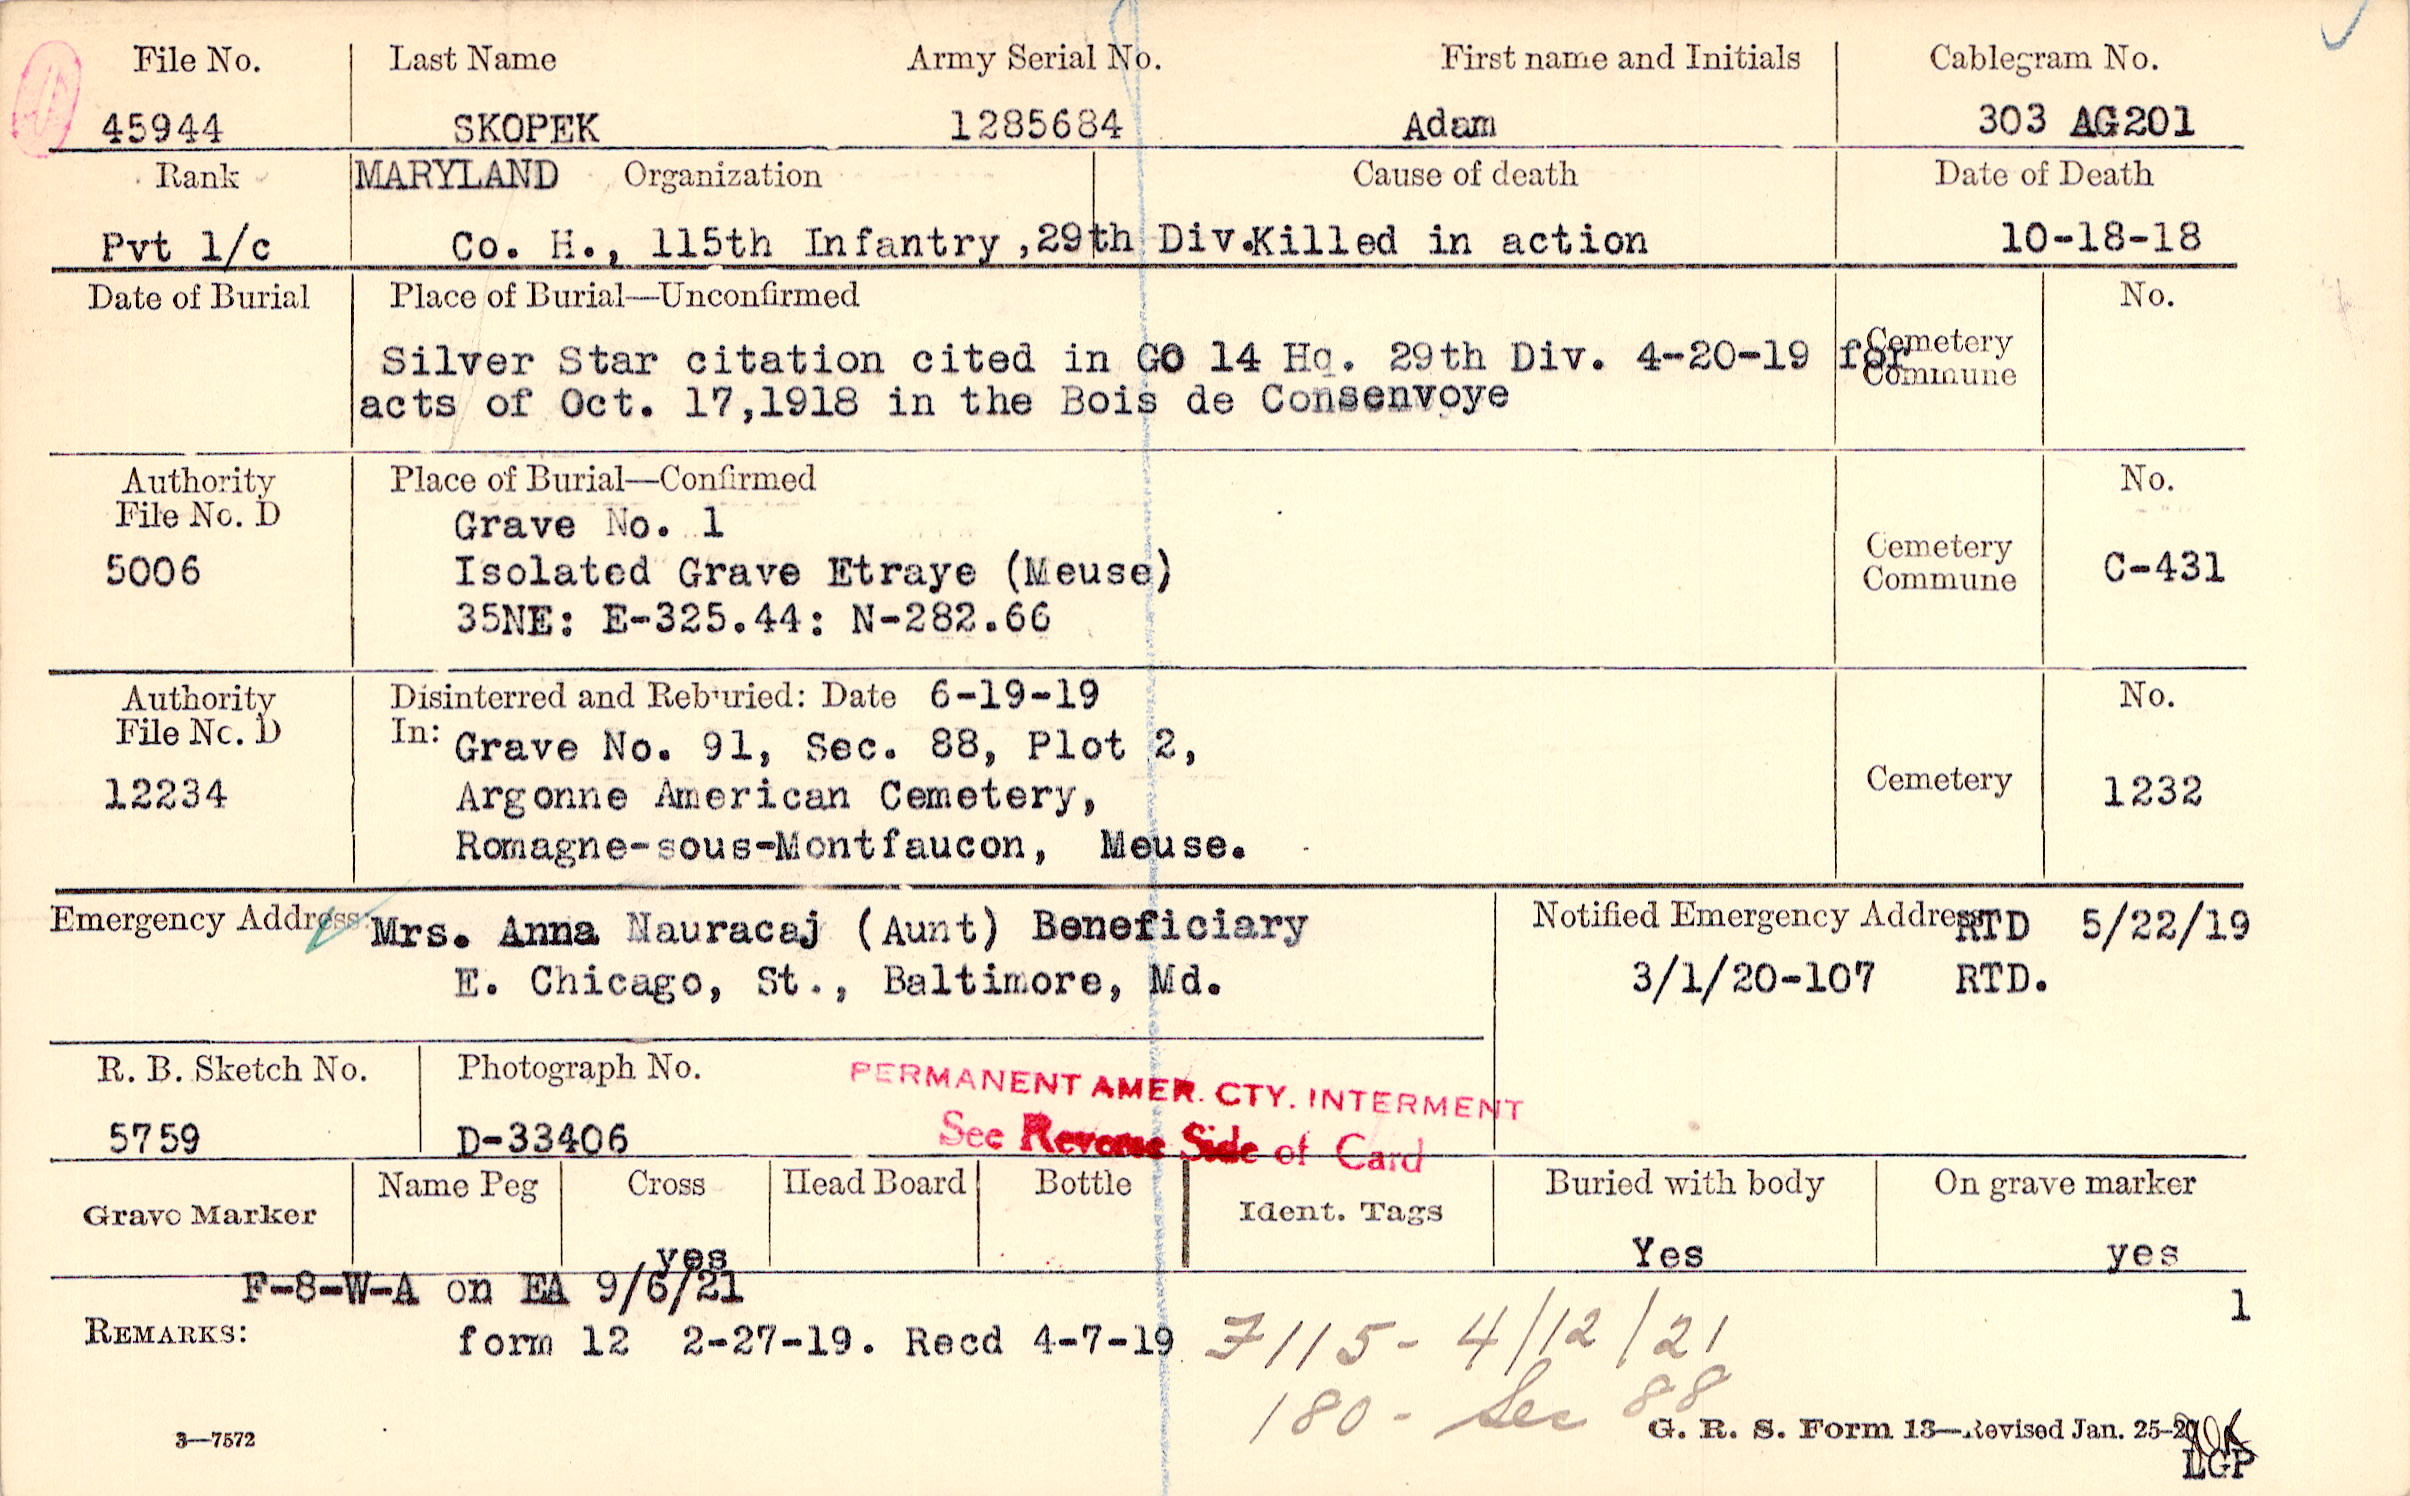 File No. Last Name Army Serial No. First name and Initials Cablegram No.
45944 SKOPEK 1285684 Adam 303 AG201
Rank MARYLAND Organization Cause of death Date of Death
Pvt 1/c Co. H., 115th Infantry ,29th Div. Killed in action 10-18-18
Date of Burial Place of Burial—Unconfirmed No.
Silver Star citation cited in GO 14 Hq. 29th Div. 4-20-19 for Cemetery
Commune
acts of Oct. 17,1918 in the Bois de Consenvoye
Authority Place of Burial—Confirmed No.
File No. D
Grave No. 1
5006 Isolated Grave Etraye (Meuse) Cemetery
Commune C-431
35NE: E-325.44: N-282.66
Authority Disinterred and Reburied: Date 6-19-19 No.
File No. D In: Grave No. 91, Sec. 88, Plot 2,
12234 Argonne American Cemetery, Cemetery 1232
Romagne-sous-Montfaucon, Meuse.
Emergency Address: Mrs. Anna Nauracaj (Aunt) Beneficiary Notified Emergency Address RTD 5/22/19
E. Chicago, St., Baltimore, Md. 3/1/20-107 RTD.
R. B. Sketch No. Photograph No. PERMANENT AMER. CTY. INTERMENT
5759 D-33406 See Reverse Side of Card
Grave Marker Name Peg Cross Head Board Bottle Ident. Tags Buried with body On grave marker
yes Yes yes
F-8-W-A on EA 9/6/21 1
REMARKS: form 12 2-27-19. Recd 4-7-19 F115- 4/12/21
180- Sec 88
3—7572 G. R. S. Form 13—Revised Jan. 25-20
LGP